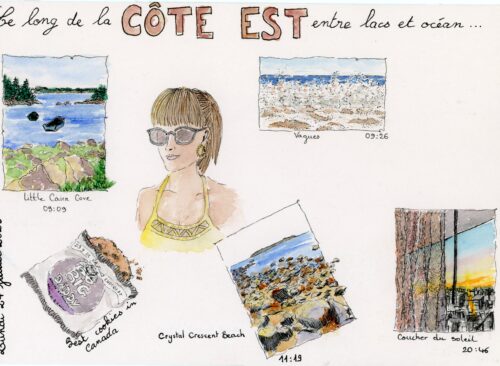 Le long de la CÔTE EST entre lacs et océan ...
Vagues 09:26
Little Cairn Cove
09:09
Best cookies in
Canada
Crystal Crescent Beach
11:19
Coucher du soleil
20:46
Lundi